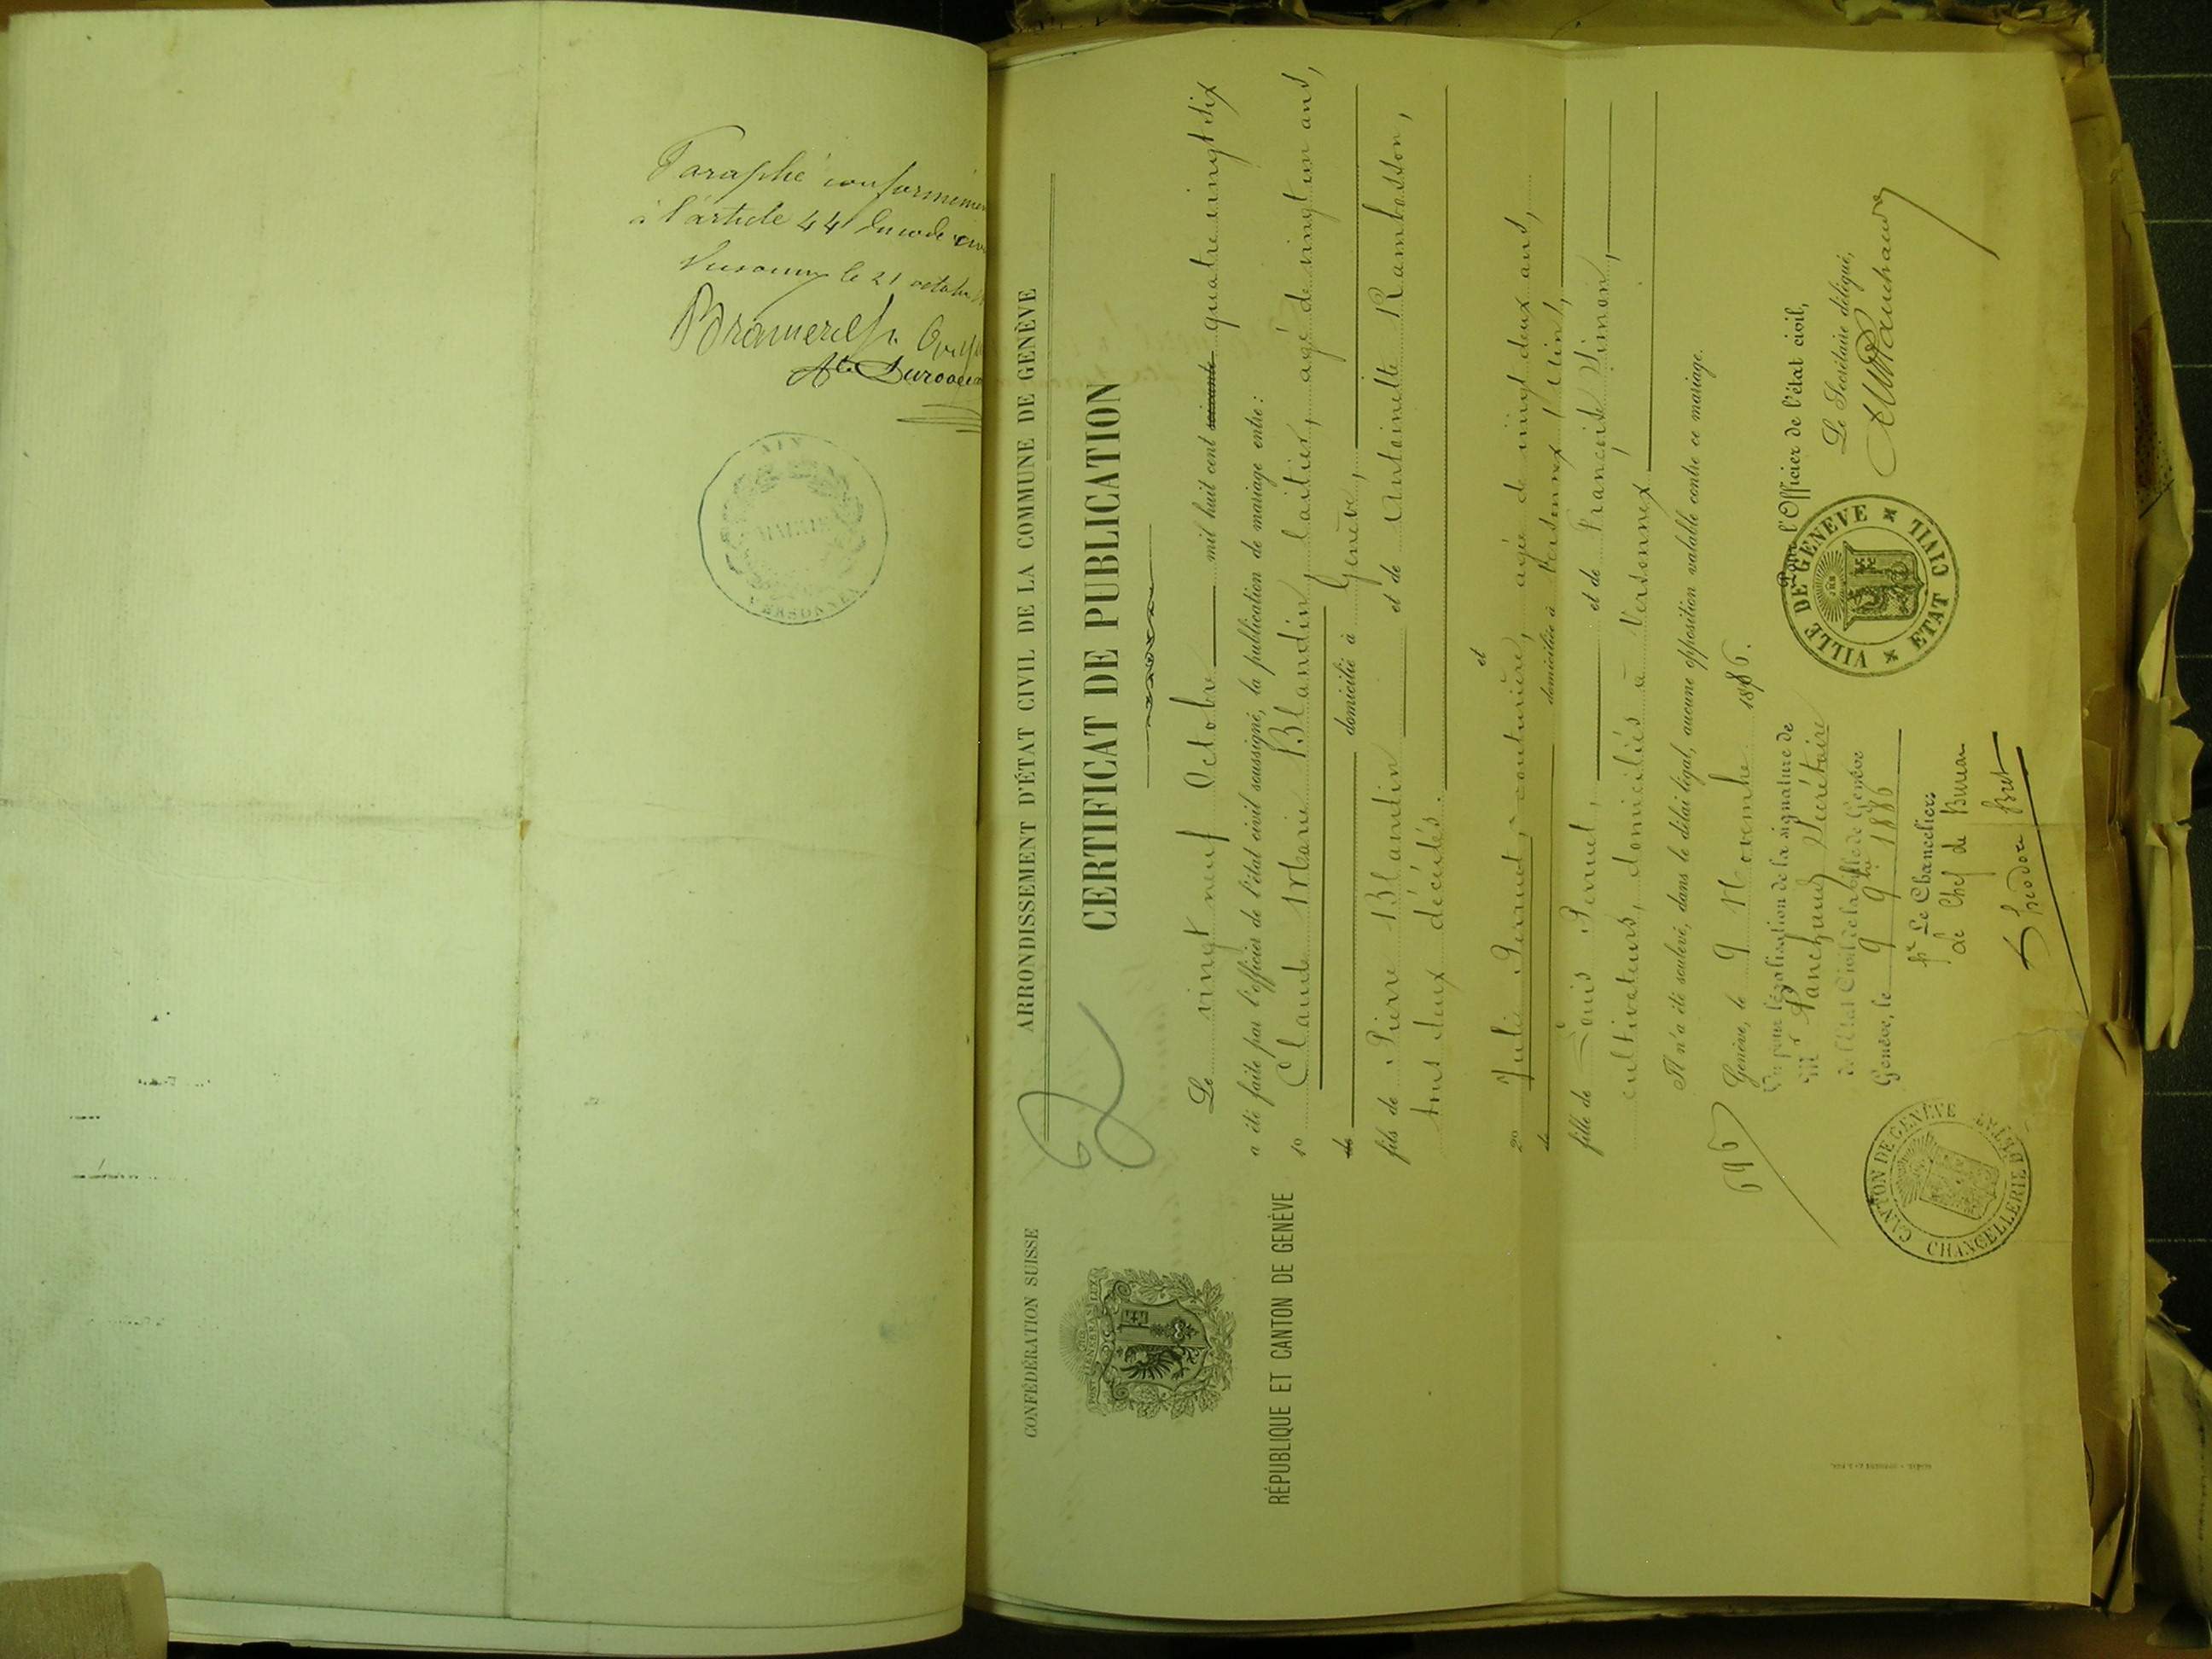 Paraphé conformémen
à l'article 44 du code civ
le 21 octobre
MAIRIE
VERSONNEX
CONFÉDÉRATION SUISSE
POST TENEBRAS LUX
RÉPUBLIQUE ET CANTON DE GENÈVE
2
ARRONDISSEMENT D'ÉTAT CIVIL DE LA COMMUNE DE GENÈVE
CERTIFICAT DE PUBLICATION
Le vingt neuf Octobre mil huit cent soixante quatre vingt six
a été faite par l'officier de l'état civil soussigné, la publication de mariage entre :
1o Claude Marie Blandin, laitier, agé de vingt un ans,
de domicilié à Genève,
fils de Pierre Blandin et de Antoinette Rambosson,
tous deux décédés.
et
2o Julie Perret, couturière, agée de vingt deux ans,
de domiciliée à Versonnex (Ain),
fille de Louis Perret, et de Françoise Simon,
cultivateurs, domiciliés à Versonnex
Il n'a été soulevé, dans le délai légal, aucune opposition valable contre ce mariage.
Genève, le 9 Novembre 1886.
696
Vu pour légalisation de la signature de
Mr Panchaud Secrétaire
de l'Etat Civil de la Ville de Genève
Genève, le 9 9bre 1886
Pr Le Chancelier:
Le Chef de Bureau
Theodore Bret
CANTON DE GENÈVE
CHANCELLERIE D'ÉTAT
Pour l'Officier de l'état civil,
Le Secrétaire délégué,
Panchaud
VILLE DE GENÈVE
ETAT CIVIL